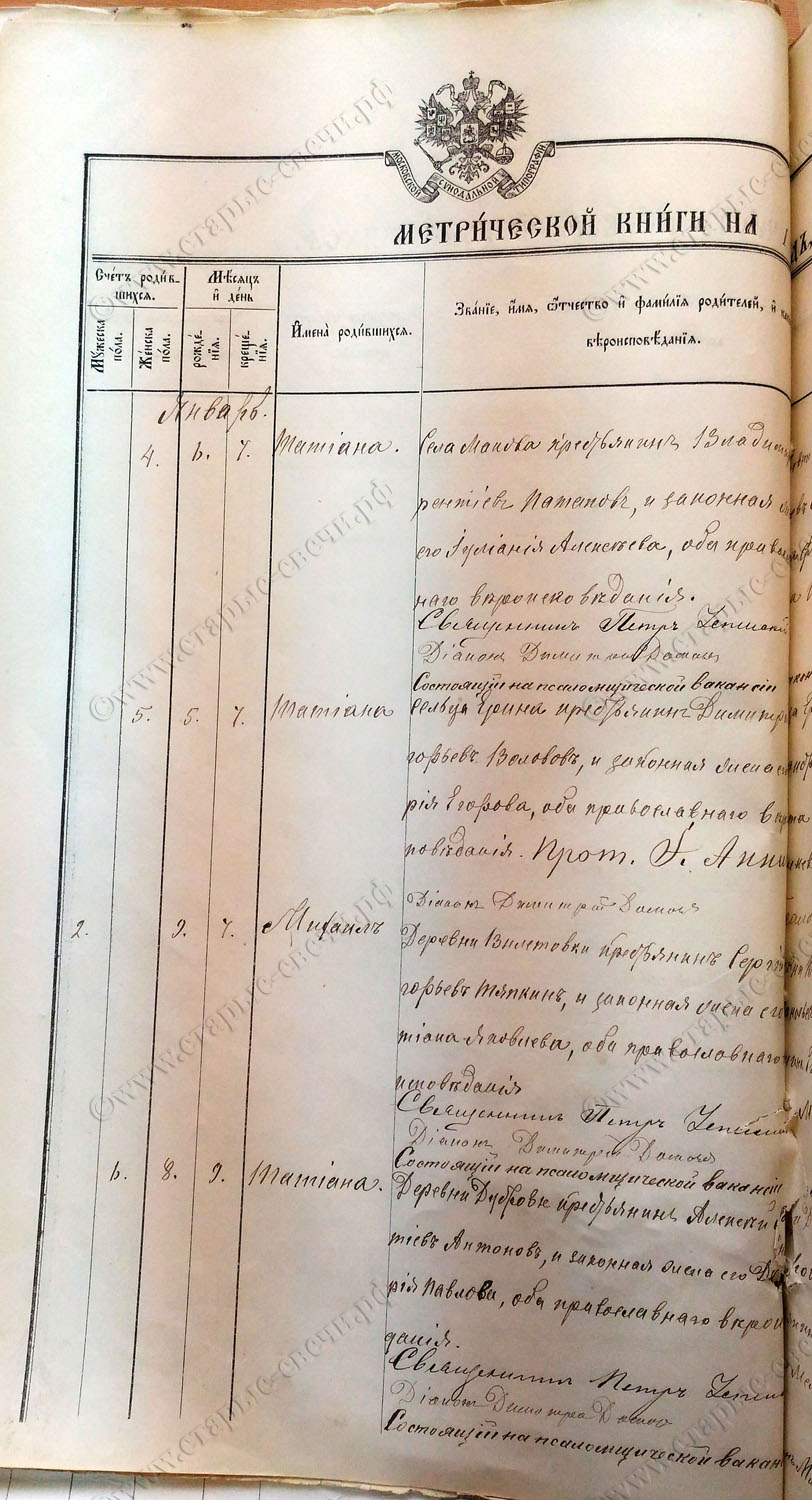 МОСКОВСКОЙ СѴНОДАЛЬНОЙ ТИПОГРАФІИ
МЕТРИ́ЧЕСКОЙ КНИ́ГИ НА 1
Сче́тъ роди́в-
шихся.
Му́жеска по́ла.
Же́нска по́ла.
Мѣ́сяцъ и҆ де́нь
рожде́-
нїѧ.
креще́-
нїѧ.
И҆мена̀ роди́вшихся.
Зва́нїе, и҆́мѧ, ѻ҆́тчество и҆ фами́лїѧ роди́телей, и҆
вѣроисповѣ́данїѧ.
Январь.
4. 6. 7. Татіана. Села Макова крестьянинъ Влади
рентіевъ Патаповъ, и законная
его Іуліанія Алексѣева, оба право
наго вѣроисповѣданія.
Священникъ Петръ
Діаконъ Димитрій
Состоящій на псаломщической вакансіи
5. 5. 7. Татіана Сельца Ерина крестьянинъ Димитр
горьевъ Волововъ, и законная жена
рія Егорова, оба православнаго в
повѣданія. Прот.
Діаконъ Димитрій
2. 9. 7. Михаилъ Деревни крестьянинъ Сергій
горьевъ Тяпкинъ, и законная жена его
тіана Яковлева, оба православнаго
исповѣданія
Священникъ Петръ
Діаконъ Димитрій
Состоящій на псаломщической вакансіи
6. 8. 9. Татіана. Деревни Дубровки крестьянинъ Алексѣй
тіевъ Антоновъ, и законная жена его Да
рія Павлова, оба православнаго вѣрои
данія.
Священникъ Петръ
Діаконъ Димитрій
Состоящій на псаломщической вакан
©www.старые-свечи.рф